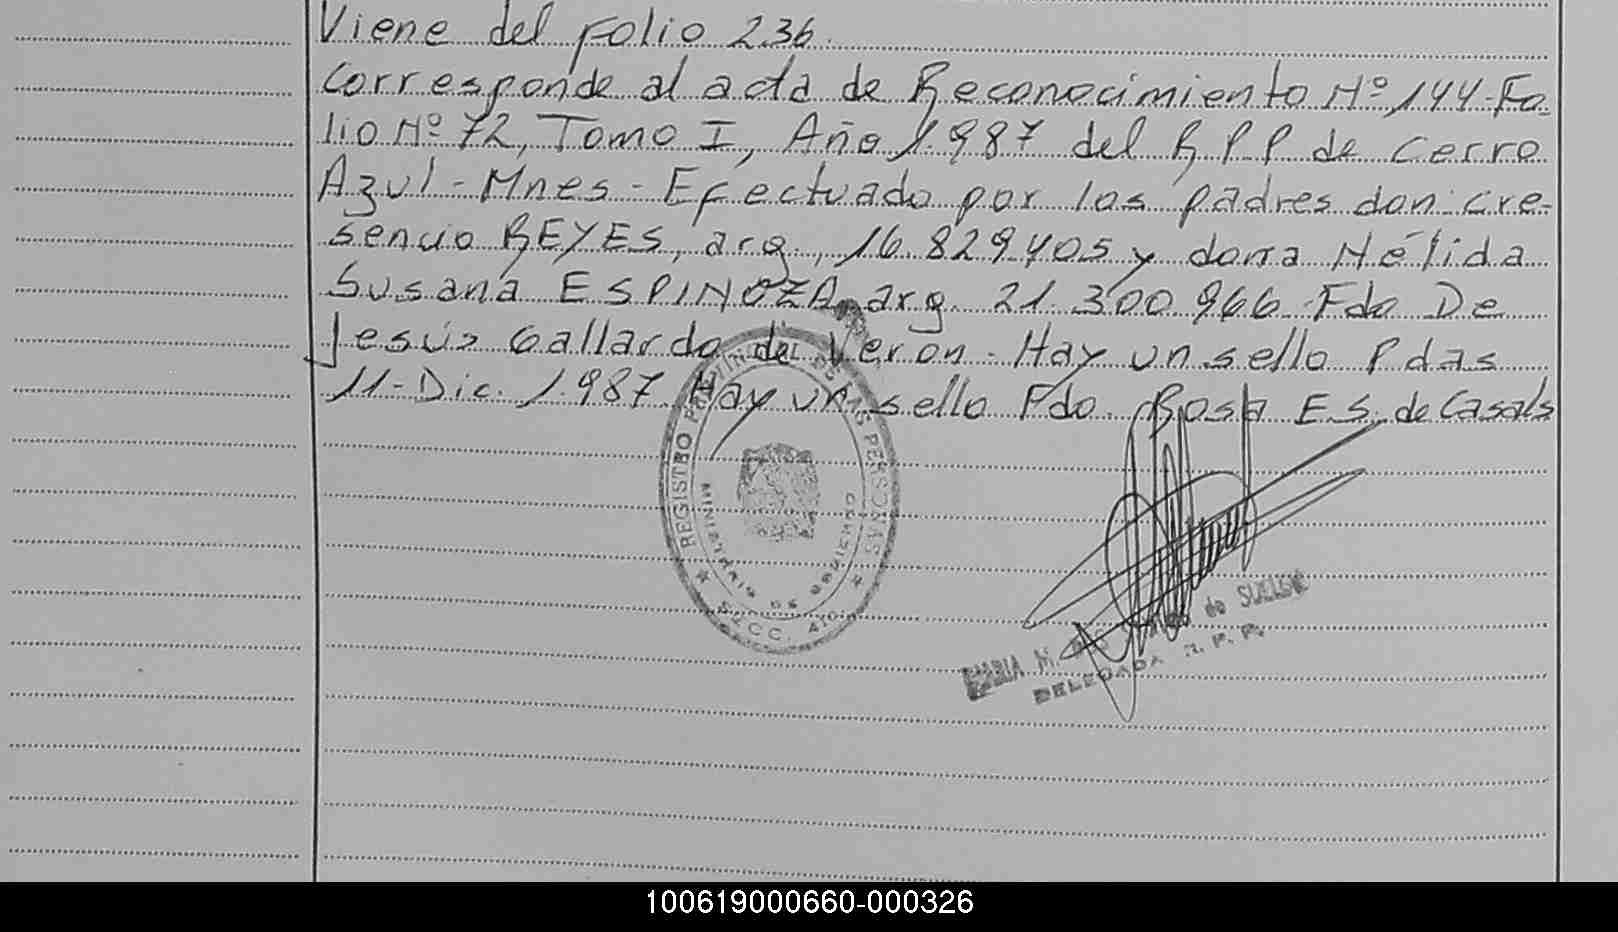 Viene del Folio 236.
Corresponde al acta de Reconocimiento Nº 144-Fo
lio Nº 72, Tomo I, Año 1.987 del R P P de Cerro
Azul - Mnes - Efectuado por los padres don: Cre-
sencio REYES, arg. 16.829.405 y dona Nélida
Susana ESPINOZA arg. 21.300.966 - Fdo De
Jesús Gallardo de Veron - Hay un sello Pdas
11 - Dic. 1.987. Hay un sello Fdo. Rosa E S. de Casals
REGISTRO PROVINCIAL DE LAS PERSONAS
MINISTERIO DE GOBIERNO
SECC.
MARIA M. de
DELEGADA R. P. P.
100619000660-000326